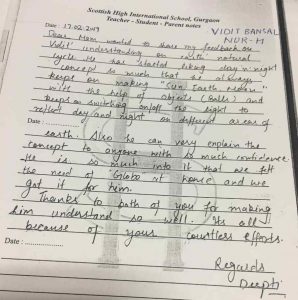 Scottish High International School, Gurgaon
Teacher - Student - Parent notes
VIDIT BANSAL
NUR-H
Date : 17.02.2017
Dear Mam wanted to share my feedback on
Vidit' understanding on earth natural
cycle. He has started liking day n night
concept so much that he always
keeps on making "Sun Earth Moon"
with the help of objects (Balls) and
keeps on switching on/off the light to
reflect day and night on different areas of
Date :
earth. Also he can very explain the
concept to anyone with so much confidence
He is so much into it that we felt
the need of 'Globe at home and we
got it for him.
Thanks to both of you for making
him understand so well. Its all
because of your countless efforts.
Date :
Regards
Deepti